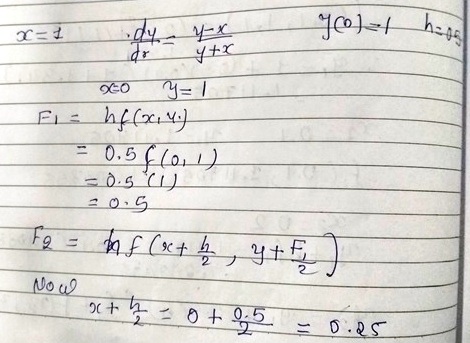 x=1 dy/dx = y-x/y+x y(0)=1 h=0.5
x=0 y=1
F₁ = hf(x,y)
= 0.5 f(0,1)
= 0.5 (1)
= 0.5
F₂ = hf(x+h/2, y+F₁/2)
Now
x+h/2 = 0+0.5/2 = 0.25